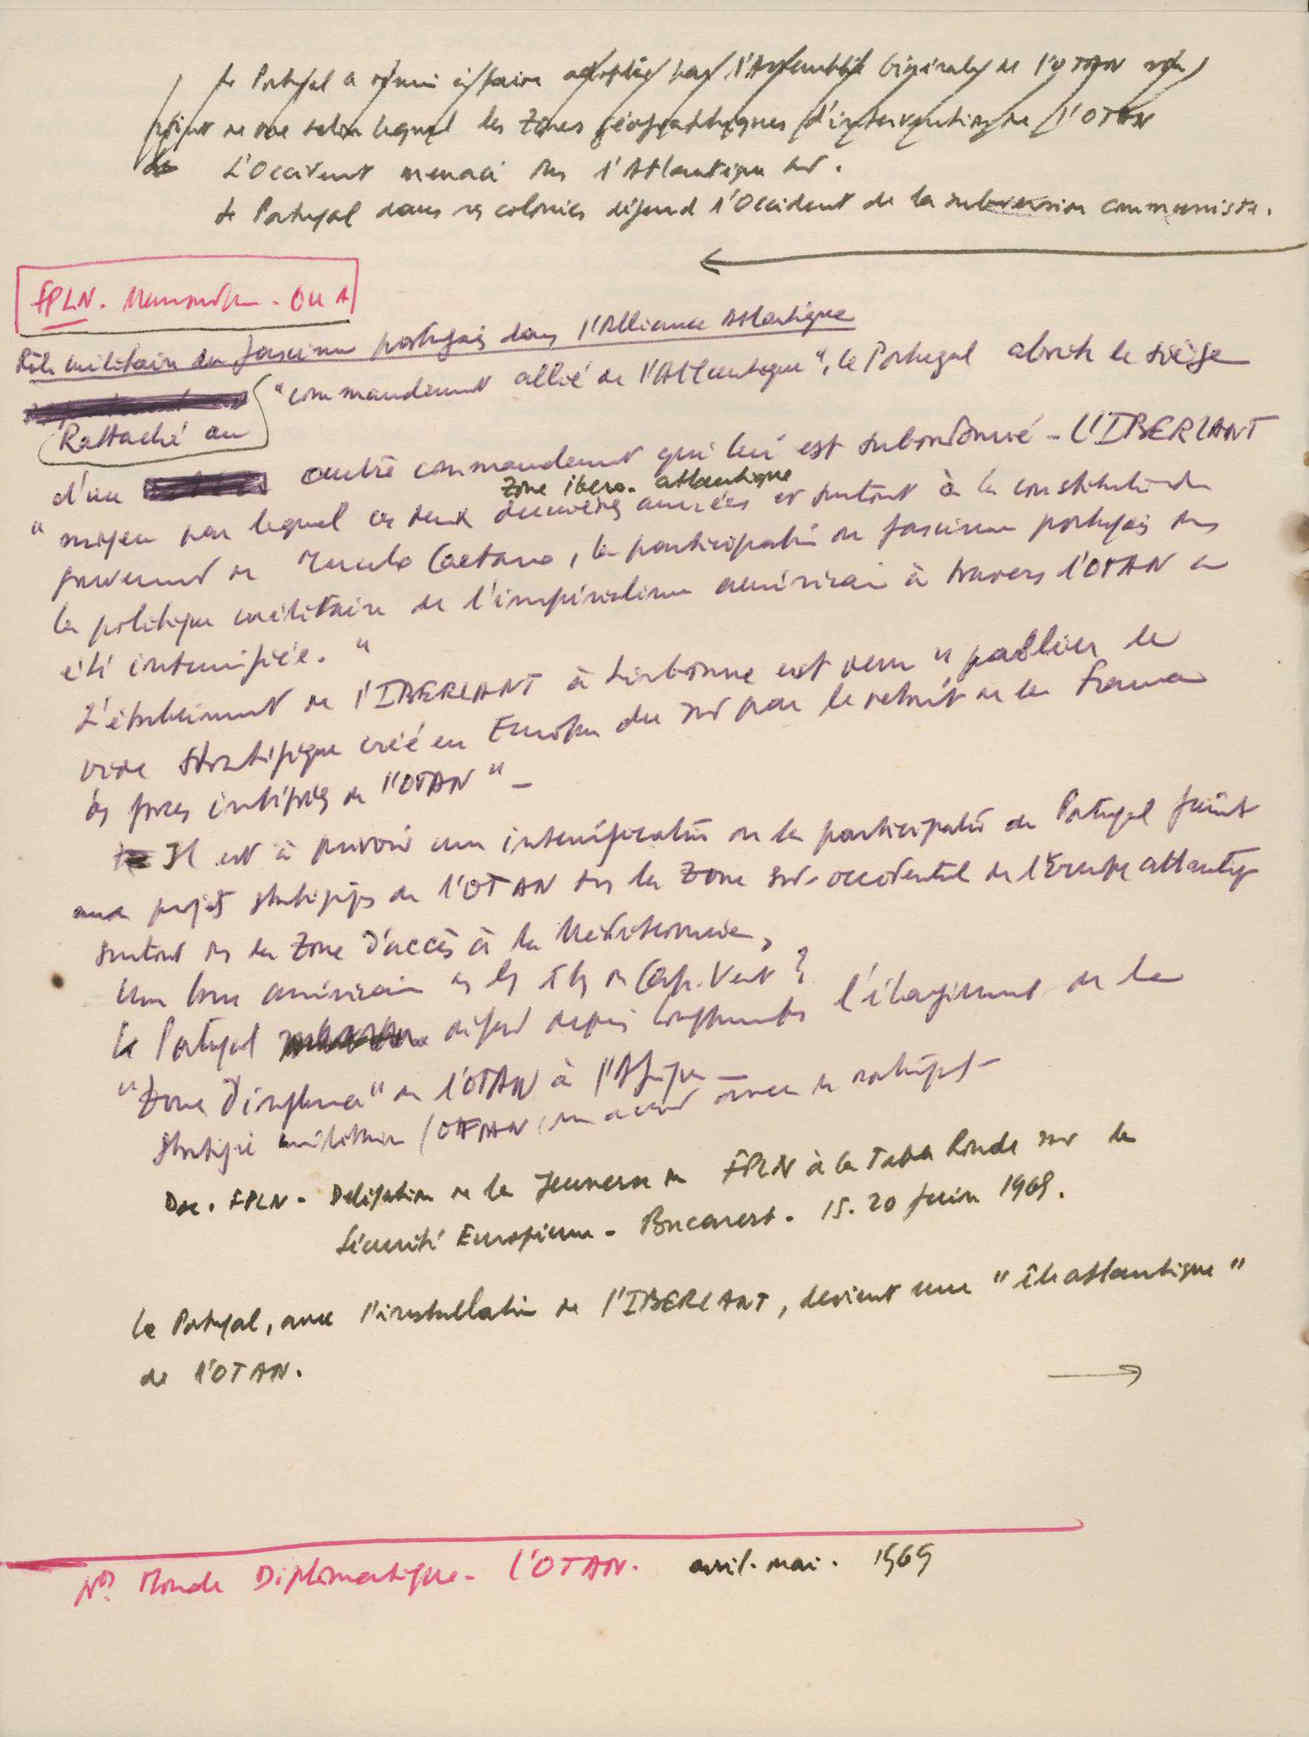 Le Portugal a réussi à faire adopter par l'Assemblée Générale de l'OTAN son
point de vue selon lequel les zones géographiques d'intervention de l'OTAN
L'Occident menacé ds l'Atlantique sud.
Le Portugal dans ses colonies défend l'Occident de la subversion communiste.
FPLN. Memorandum - OUA
Rôle militaire du fascisme portugais dans l'Alliance Atlantique
Rattaché au "commandement allié de l'Atlantique", le Portugal abrite le siège
d'un autre commandement qui lui est subordonné - L'IBERLANT
zone ibero-atlantique
" moyen par lequel ces deux dernières années et surtout à la constitution du
gouvernement de Marcelo Caetano, la participation du fascisme portugais ds
la politique militaire de l'impérialisme américain à travers l'OTAN a
été intensifiée. "
L'établissement de l'IBERLANT à Lisbonne est venu " pallier le
vide stratégique créé en Europe du sud par le retrait de la France
des forces intégrées de l'OTAN " -
Il est à prévoir une intensification de la participation du Portugal
aux projets stratégiques de l'OTAN ds la zone sud-occidental de l'Europe atlantique
surtout ds la zone d'accès à la Méditerranée,
Une base américaine ds les îles du Cap-Vert ?
Le Portugal défend depuis longtemps l'élargissement de la
"zone d'influence" de l'OTAN à l'Afrique -
Stratégie militaire (OTAN
Doc. FPLN - Délégation de la Jeunesse du FPLN à la Table Ronde sur la
Sécurité Européenne - Bucarest - 15-20 Juin 1969.
Le Portugal, avec l'installation de l'IBERLANT, devient une " île atlantique "
de l'OTAN.
Nº Monde Diplomatique - L'OTAN. avril-mai. 1969